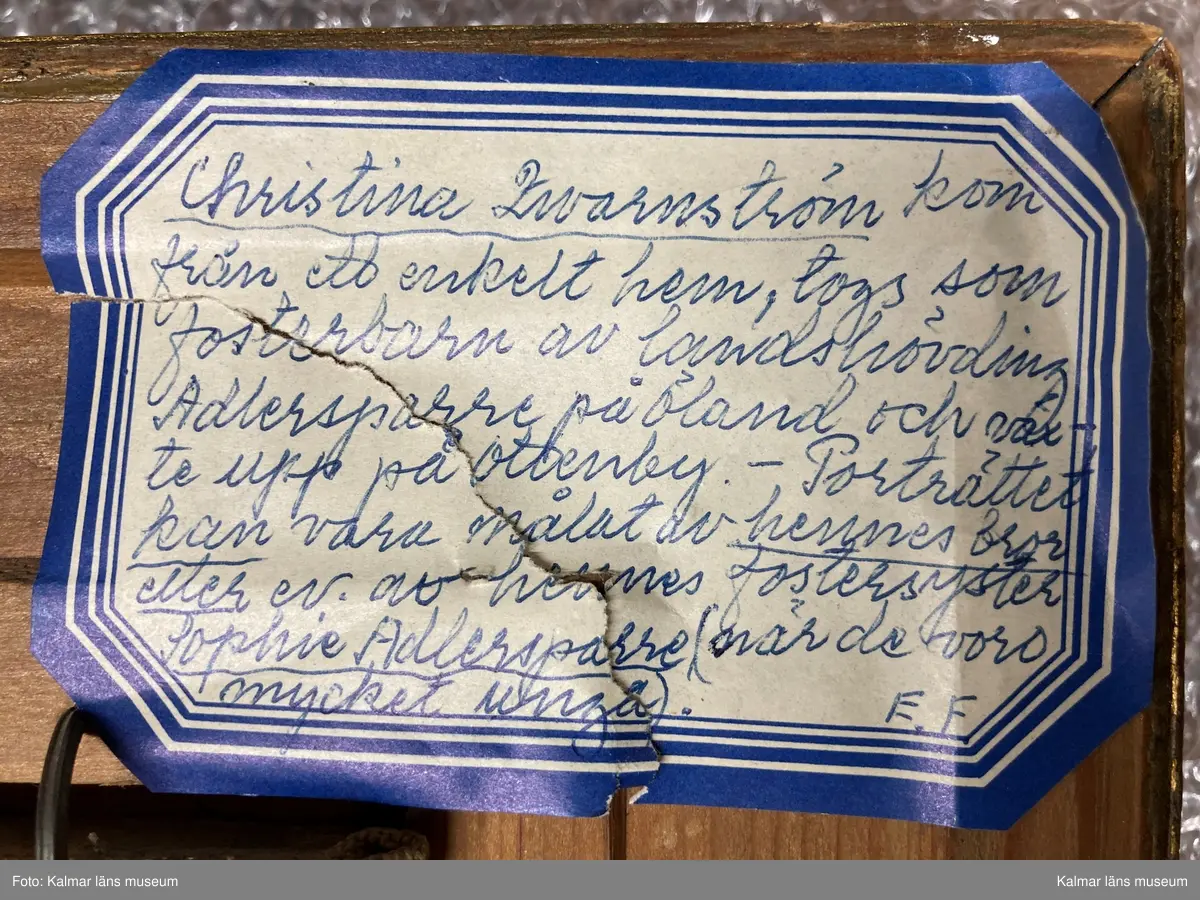 Christina Zwarnström kom
från ett enkelt hem, togs som
fosterbarn av landshövding
Adlersparre på Öland och väx-
te upp på Ottenby. – Porträttet
kan vara målat av hennes bror
eller ev. av hennes fostersyster
Sophie Adlersparre (när de voro
mycket unga).
E. F.
Foto: Kalmar läns museum
Kalmar läns museum